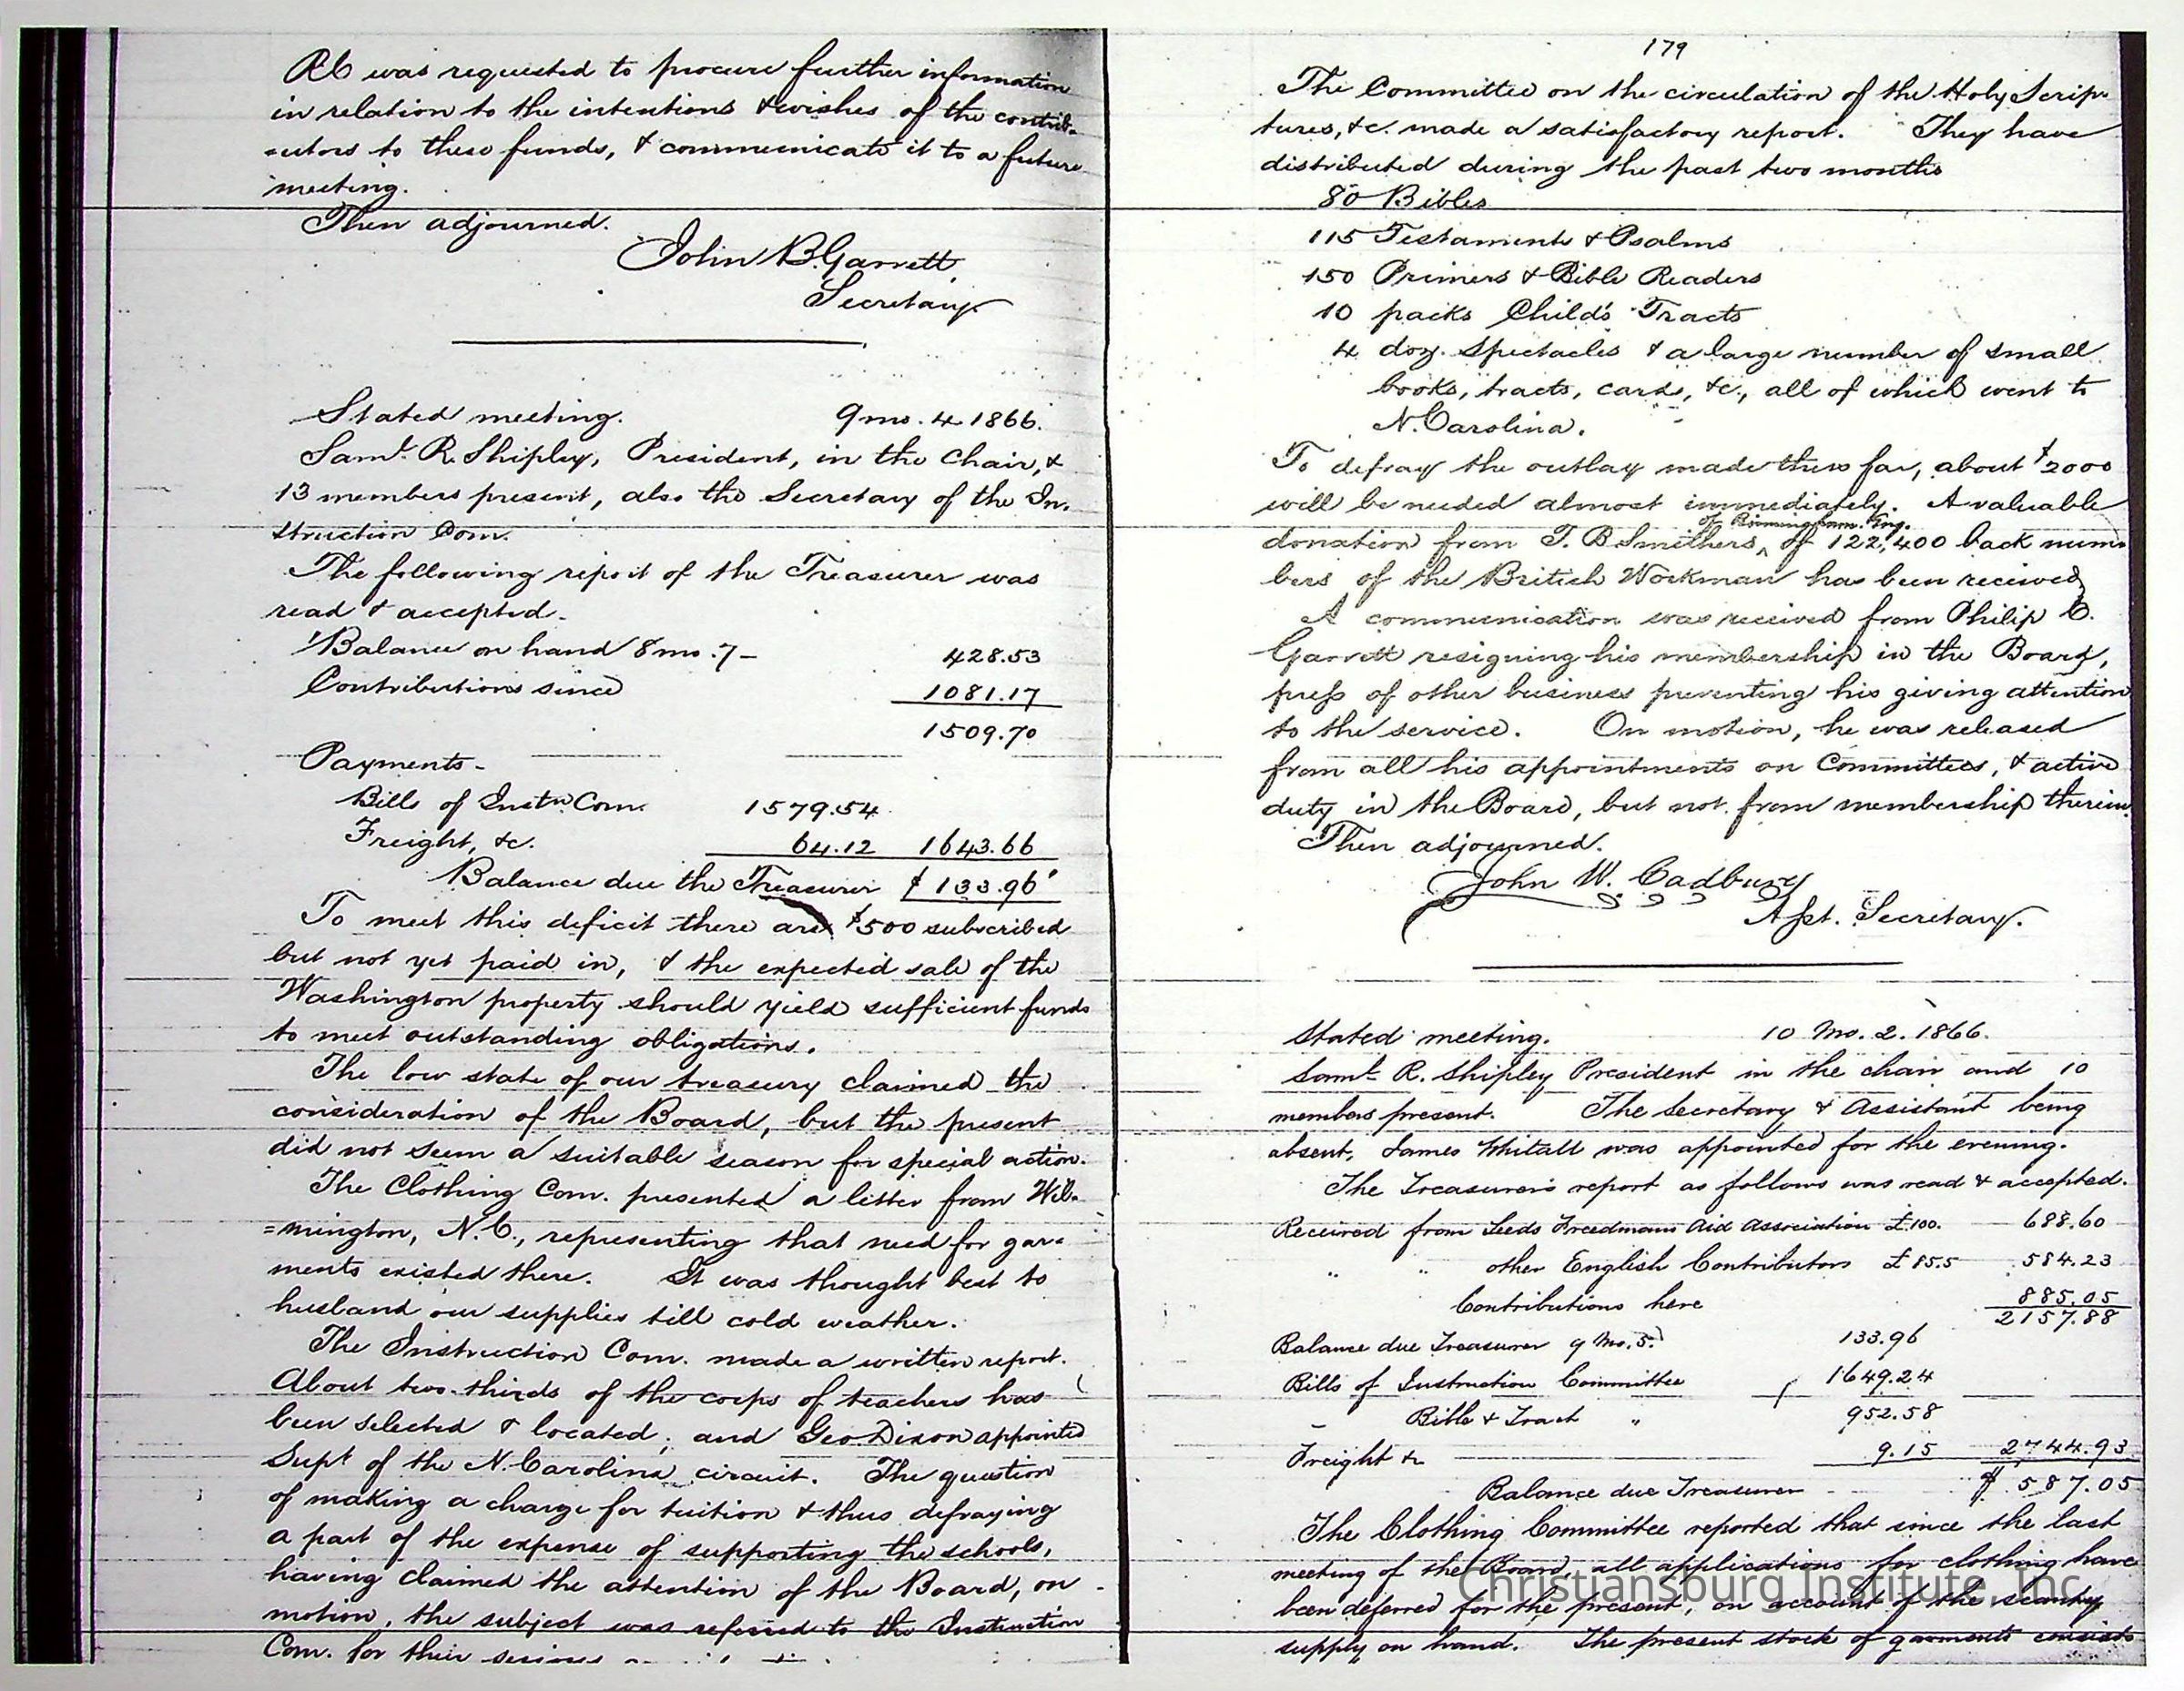 RC was requested to procure further information
in relation to the intentions & wishes of the contrib-
-utors to these funds, & communicate it to a future
meeting.
Then adjourned.
John B. Garrett,
Secretary.
Stated meeting. 9 mo. 4 1866.
Saml. R. Shipley, President, in the Chair, &
13 members present, also the Secretary of the In-
struction Com.
The following report of the Treasurer was
read & accepted.
Balance on hand 8 mo. 7 – 428.53
Contributions since 1081.17
1509.70
Payments –
Bills of Instn Com. 1579.54
Freight, &c. 64.12 1643.66
Balance due the Treasurer $133.96
To meet this deficit there are $500 subscribed
but not yet paid in, & the expected sale of the
Washington property should yield sufficient funds
to meet outstanding obligations.
The low state of our treasury claimed the
consideration of the Board, but the present
did not seem a suitable season for special action.
The Clothing Com. presented a letter from Wil-
=mington, N.C., representing that need for gar-
ments existed there. It was thought best to
husband our supplies till cold weather.
The Instruction Com. made a written report.
About two-thirds of the corps of teachers has
been selected & located; and Geo. Dixon appointed
Supt of the N. Carolina circuit. The question
of making a charge for tuition & thus defraying
a part of the expense of supporting the schools,
having claimed the attention of the Board, on
motion, the subject was referred to the Instruction
Com. for their serious
179
The Committee on the circulation of the Holy Scrip-
tures, &c. made a satisfactory report. They have
distributed during the past two months
80 Bibles
115 Testaments & Psalms
150 Primers & Bible Readers
10 packs Child's Tracts
4 doz. spectacles & a large number of small
books, tracts, cards, &c., all of which went to
N. Carolina.
To defray the outlay made thus far, about $2000
will be needed almost immediately. A valuable
of Birmingham. Eng.
donation from T. B. Smithers, of 122,400 back num-
bers of the British Workman has been received.
A communication was received from Philip C.
Garrett resigning his membership in the Board,
press of other business preventing his giving attention
to the service. On motion, he was released
from all his appointments on Committees, & active
duty in the Board, but not from membership therein.
Then adjourned.
John W. Cadbury
Asst. Secretary.
Stated meeting. 10 Mo. 2. 1866.
Saml. R. Shipley President in the chair and 10
members present. The Secretary & Assistant being
absent, James Whitall was appointed for the evening.
The Treasurer's report as follows was read & accepted.
Received from Leeds Freedmans Aid Association £100. 688.60
" " other English Contributors £85.5 584.23
Contributions here 885.05
2157.88
Balance due Treasurer 9 Mo. 5. 133.96
Bills of Instruction Committee 1649.24
Bible & Tract " 952.58
Freight &c 9.15 2744.93
Balance due Treasurer $587.05
The Clothing Committee reported that since the last
meeting of the Board, all applications for clothing have
been deferred for the present, on account of the scanty
supply on hand. The present stock of garments consists
Christiansburg Institute, Inc.